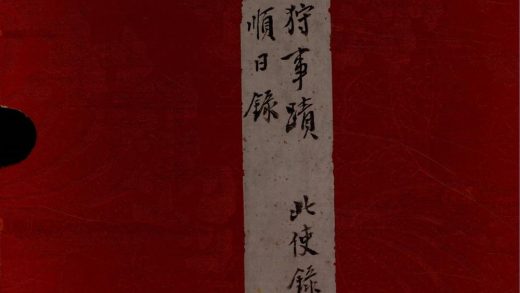 狩事蹟 北使錄
順日錄